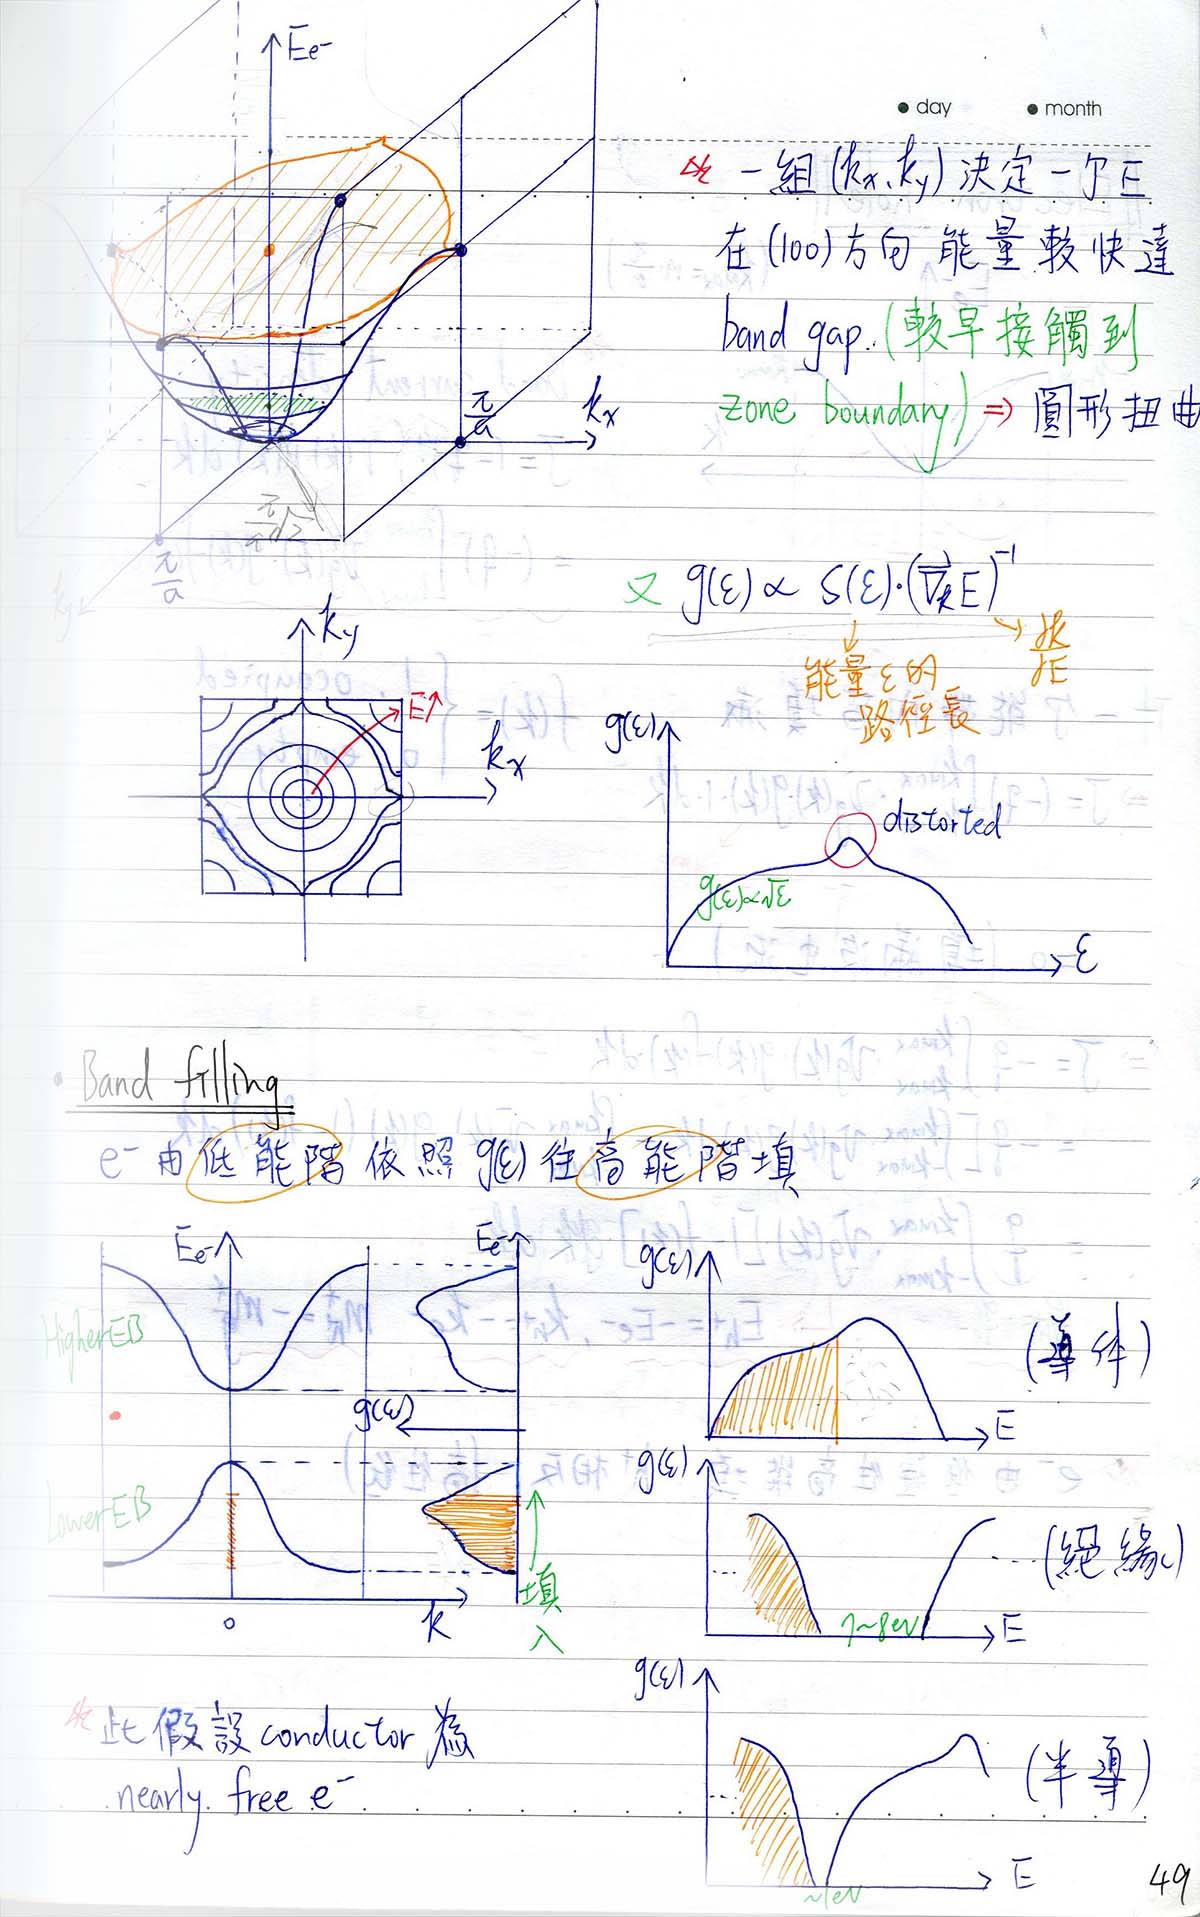 day month
E e⁻
※ 一組(kx、ky)決定一个E
在(100)方向 能量較快達
band gap.(較早接觸到
zone boundary) ⇒ 圓形扭曲
kx
π/a
π/a
ky
又 g(ε) ∝ S(ε)·(∇k E)⁻¹
能量ε的
路徑長
dk/dE
ky
E↑
kx
g(ε)
distorted
g(ε)∝√ε
ε
Band filling
e⁻ 由低能階依照 g(ε) 往高能階填
E e⁻
E e⁻
Higher EB
g(ε)
Lower EB
填
入
0
k
g(ε)
(導体)
E
g(ε)
(絕緣)
7~8eV
E
g(ε)
(半導)
~1eV
E
※ 此假設 conductor 為
nearly free e⁻
49